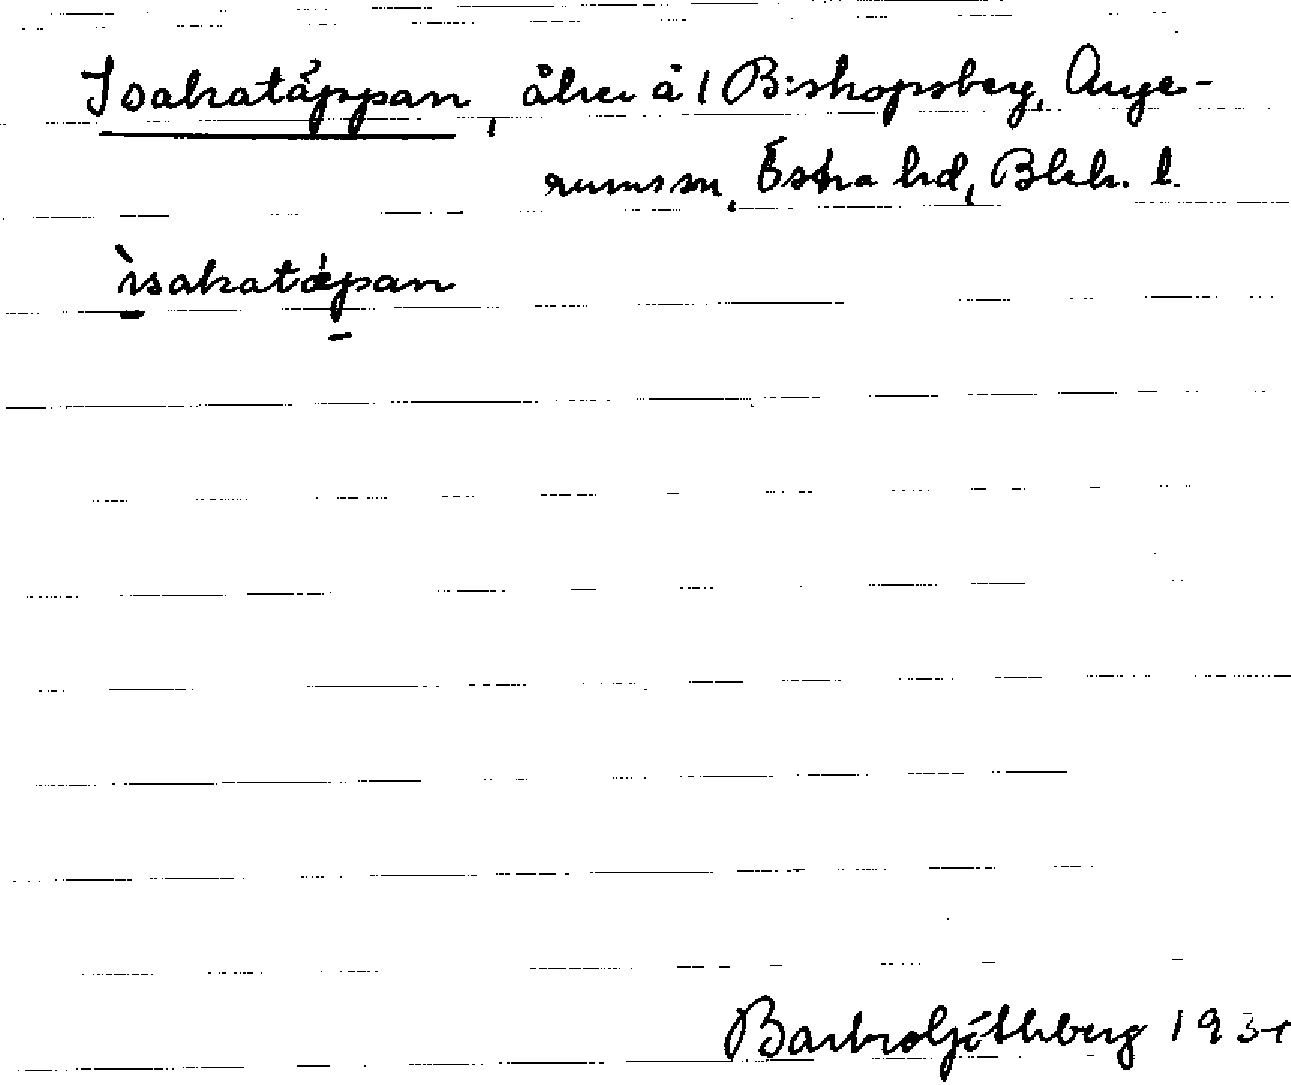 Isakatäppan, åker å 1 Biskopsberg, Auge-
rums sn, Östra hd, Blek. l.
ìsakatǽpan
Barbro Göthberg 1931